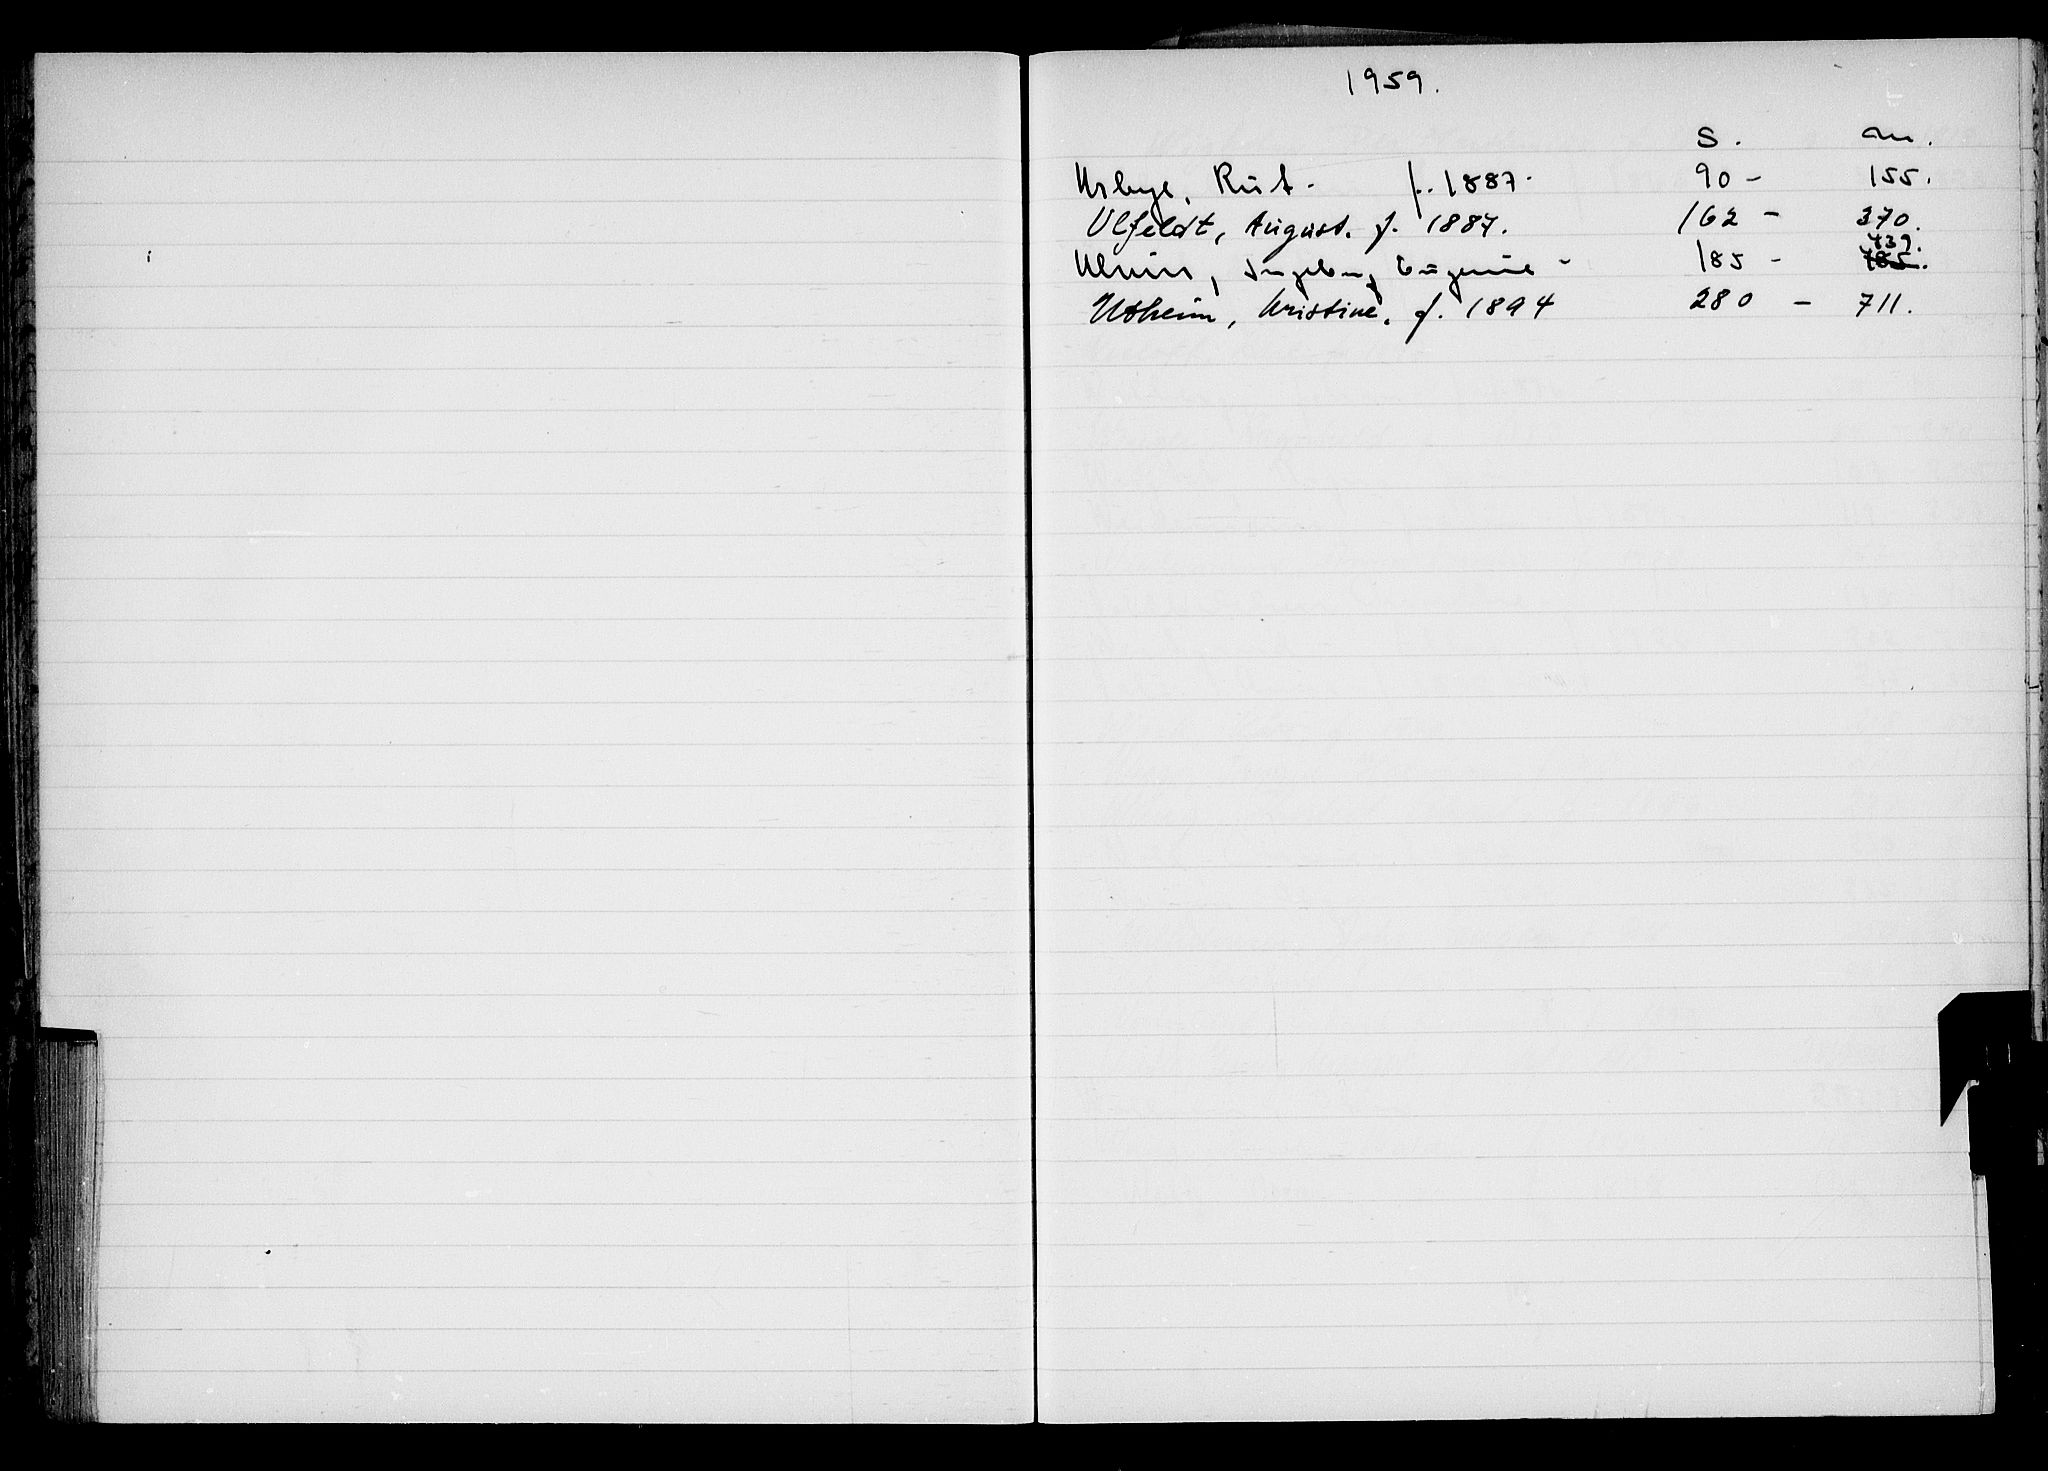 1959.
S. m.
Usbye, Rut. f. 1887. 90 - 155.
Ulfeldt, August. f. 1887. 162 - 370.
439.
Ingeborg Eugenie - 185 - 785.
Utheim, Kristine. f. 1894 280 - 711.